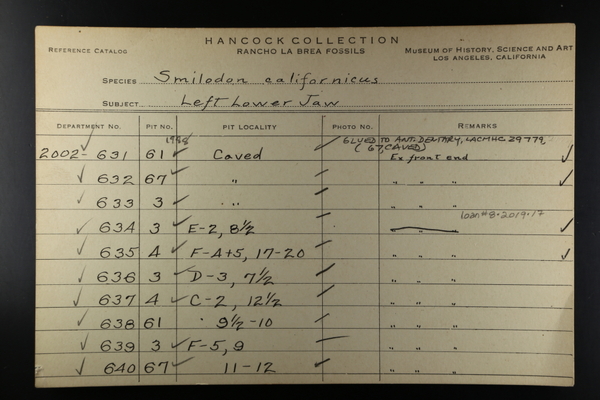 HANCOCK COLLECTION
REFERENCE CATALOG RANCHO LA BREA FOSSILS MUSEUM OF HISTORY, SCIENCE AND ART
LOS ANGELES, CALIFORNIA
SPECIES Smilodon californicus
SUBJECT Left Lower Jaw
DEPARTMENT NO. PIT NO. PIT LOCALITY PHOTO NO. REMARKS
GLUED TO ANT. DENTARY, LACMHC 29779,
(67, CAVED)
2002- 631 61 Caved Ex front end
632 67 " " " "
633 3 " " " "
loan #8-2019-17
634 3 E-2, 8½ " " "
635 4 F-4+5, 17-20 " " "
636 3 D-3, 7½ " " "
637 4 C-2, 12½ " " "
638 61 9½-10 " " "
639 3 F-5, 9 " " "
640 67 11-12 " " "